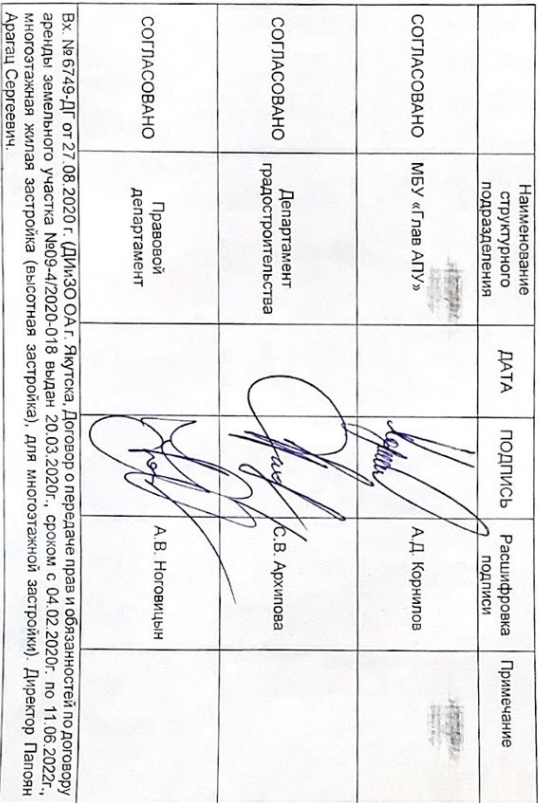 Наименование структурного подразделения ДАТА ПОДПИСЬ Расшифровка подписи Примечание
СОГЛАСОВАНО МБУ «Глав АПУ» А.Д. Корнилов
СОГЛАСОВАНО Департамент градостроительства С.В. Архипова
СОГЛАСОВАНО Правовой департамент А.В. Ноговицын
Вх. №6749-ДГ от 27.08.2020 г. (ДИиЗО ОА г. Якутска, Договор о передаче прав и обязанностей по договору
аренды земельного участка №09-4/2020-018 выдан 20.03.2020г., сроком с 04.02.2020г. по 11.06.2022г.,
многоэтажная жилая застройка (высотная застройка), для многоэтажной застройки). Директор Папоян
Арагац Сергеевич.